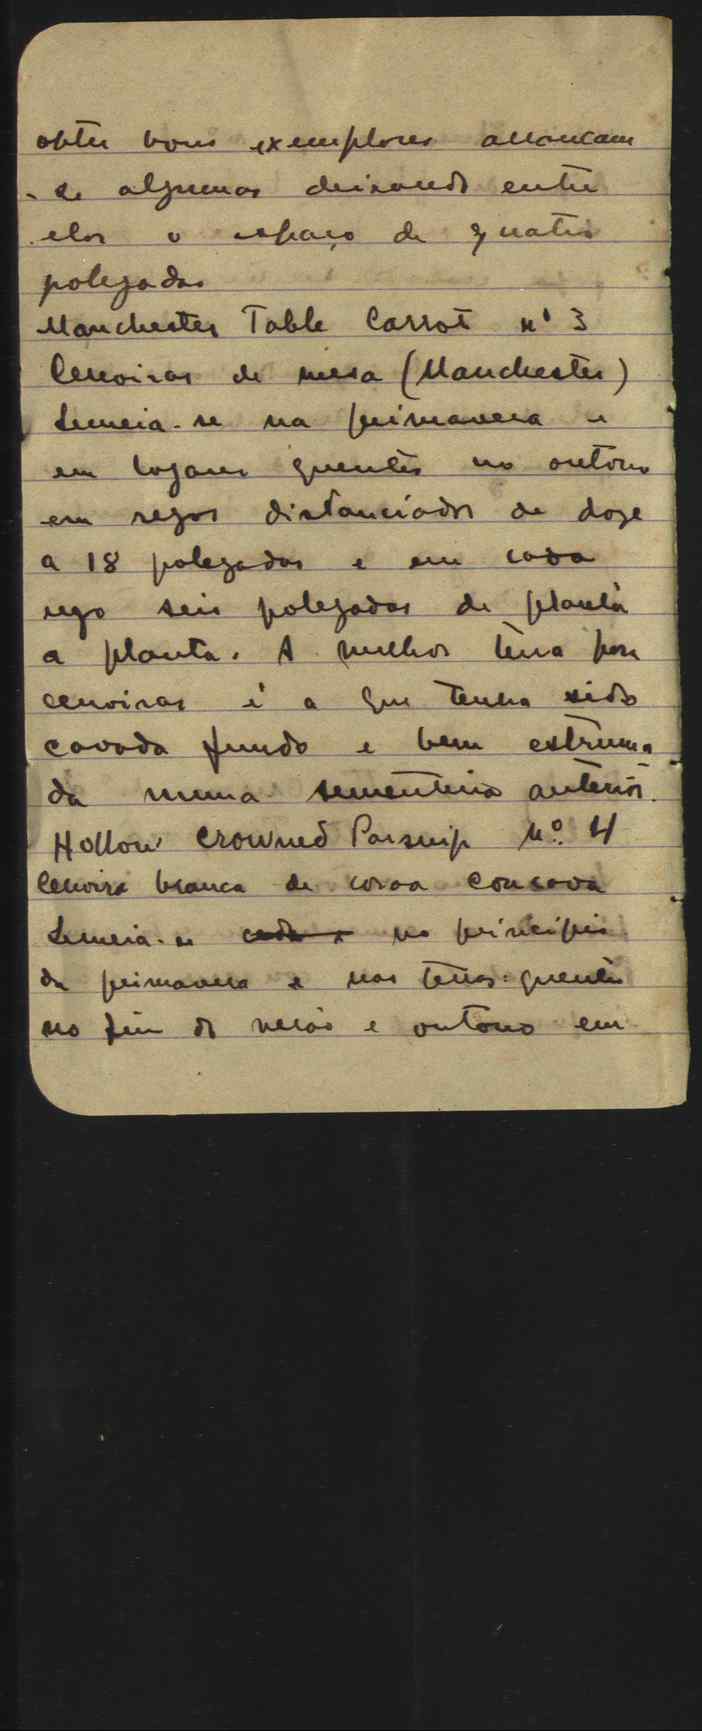 obter bons exemplares arrancam
-se algumas deixando entre
elas o espaço de quatro
polegadas
Manchester Table Carrot nº 3
Cenoiras de mesa (Manchester)
Semeia-se na primavera e
em logares quentes no outono
em regos distanciados de doze
a 18 polegadas e em cada
rego seis polegadas de planta
a planta. A melhor terra para
cenoiras é a que tenha sido
cavada fundo e bem estruma
da numa sementeira anterior.
Hollow Crowned Parsnip Nº 4
Cenoira branca de coroa concava
Semeia-se no principio
da primavera e nas terras quentes
no fim do verão e outono em